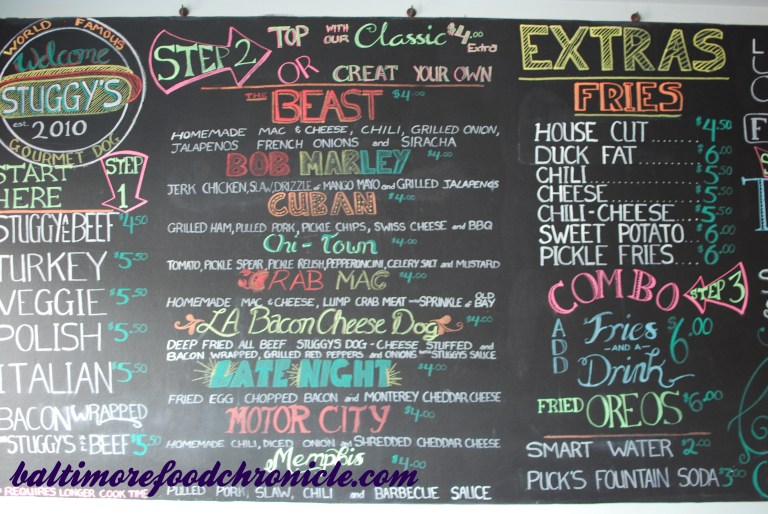 WORLD FAMOUS
Welcome
STUGGY'S
est. 2010
GOURMET DOG
START
HERE
STEP
1
STUGGY ALL BEEF $4.50
TURKEY $5.50
VEGGIE $5.50
POLISH $5.50
ITALIAN $5.50
BACON WRAPPED
STUGGY'S ALL BEEF $5.50
REQUIRES LONGER COOK TIME
STEP 2
TOP WITH OUR Classic $4.00 Extra
OR CREAT YOUR OWN
THE BEAST $4.00
HOMEMADE MAC & CHEESE, CHILI, GRILLED ONION,
JALAPENOS FRENCH ONIONS AND SIRACHA
BOB MARLEY $4.00
JERK CHICKEN, SLAW, DRIZZLE of MANGO MAYO and GRILLED JALAPENOS
CUBAN $4.00
GRILLED HAM, PULLED PORK, PICKLE CHIPS, SWISS CHEESE AND BBQ
Chi-Town $4.00
TOMATO, PICKLE SPEAR, PICKLE RELISH, PEPPERONCINI, CELERY SALT and MUSTARD
CRAB MAC $4.00
HOMEMADE MAC & CHEESE, LUMP CRAB MEAT with SPRINKLE of OLD BAY
LA Bacon Cheese Dog $4.00
DEEP FRIED ALL BEEF STUGGYS DOG - CHEESE STUFFED and
BACON WRAPPED, GRILLED RED PEPPERS and ONIONS with STUGGYS SAUCE
LATE NIGHT $4.00
FRIED EGG, CHOPPED BACON and MONTEREY CHEDDAR CHEESE
MOTOR CITY $4.00
HOMEMADE CHILI, DICED ONION and SHREDDED CHEDDAR CHEESE
Memphis $4.00
PULLED PORK, SLAW, CHILI and BARBECUE SAUCE
EXTRAS
FRIES
HOUSE CUT....... $4.50
DUCK FAT....... $6.00
CHILI............ $5.50
CHEESE......... $5.50
CHILI-CHEESE.... $5.50
SWEET POTATO... $6.00
PICKLE FRIES.... $6.00
COMBO
STEP 3
ADD Fries AND A Drink $6.00
FRIED OREOS $6.00
SMART WATER $2.00
PUCK'S FOUNTAIN SODA $3.00
baltimorefoodchronicle.com